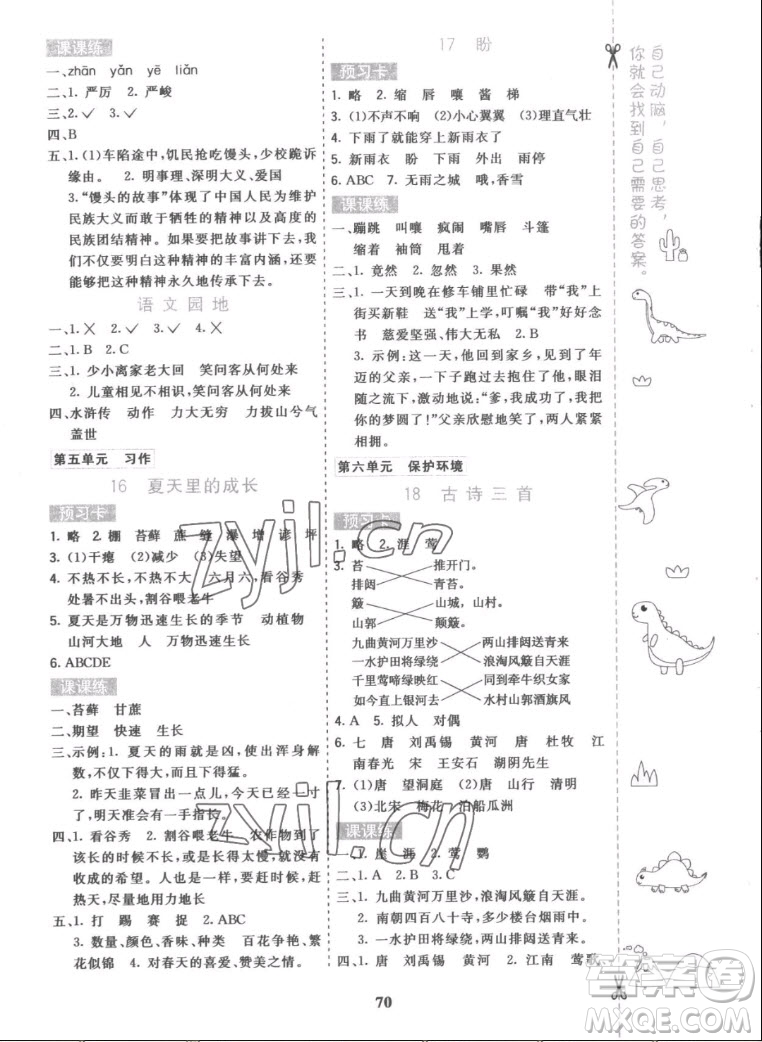 课课练
一、zhān yǎn yē liǎn
二、1. 严厉 2. 严峻
三、2.✓ 3.✓
四、B
五、1. (1)车陷途中，饥民抢吃馒头，少校跪诉
缘由。 2. 明事理、深明大义、爱国
3.“馒头的故事”体现了中国人民为维护
民族大义而敢于牺牲的精神以及高度的
民族团结精神。把故事讲下去，我
们不要明白这种精神的丰富内涵，还要
使这种精神永久地传承下去。
语文园地
一、1.╳ 2.✓ 3.✓ 4.╳
二、1. B 2. C
三、1. 少小离家老大回 笑问客从何处来
2. 儿童相见不相识，笑问客从何处来
四、水浒传 动作 力大无穷 力拔山兮气
盖世
第五单元 习作
16 夏天里的成长
预习卡
1. 略 2. 棚 苔藓 蔗 缝 瀑 增 谚 坪
3. (1)干瘪 (2)减少 (3)失望
4. 不热不长，不热不大 六月六，看谷秀
处暑不出头，割谷喂老牛
5. 夏天是万物迅速生长的季节 动植物
山河大地 人 万物迅速生长
6. ABCDE
课课练
一、苔藓 甘蔗
二、期望 快速 生长
三、示例：1. 夏天的雨就是凶，使出浑身解
数，不下则已，一下就下得猛。
2. 昨天韭菜冒出一点儿，今天已经一寸
了，明天准会有一手指长。
四、1. 看谷秀 2. 割谷喂老牛 农作物到了
该长的时候不长，或是长得太慢，就没有收
成的希望。 3. 人也是一样，要赶时候，赶
热天，尽量地用力地长。
五、1. 打 踢 赛 捉 2. ABC
3. 数量、颜色、香味、种类 百花争艳、繁
花似锦 4. 对春天的喜爱、赞美之情。
17 盼
预习卡
1. 略 2. 缩 唇 嚷 酱 梯
3. (1)不声不响 (2)小心翼翼 (3)理直气壮
4. 下雨了就能穿上新雨衣了
5. 新雨衣 盼 下雨 外出 雨停
6. ABC 7. 无雨之城 哦，香雪
课课练
一、蹦跳 叫嚷 疯闹 嘴唇 斗篷
缩着 袖筒 甩着
二、1. 竟然 2. 忽然 3. 果然
三、1. 一天到晚在修车铺里忙碌 带“我”上
街买新鞋 送“我”上学，叮嘱“我”好好念
书 慈爱坚强、勤劳无私 2. B
3. 示例：这一天，他回到家乡，见到了年
迈的父亲，一下子跑过去抱住了他，眼泪
随之流下，激动地说：“爹，我成功了，我
你的梦圆了！”父亲欣慰地笑了，两人紧紧
相拥。
第六单元 保护环境
18 古诗三首
预习卡
1. 略 2. 涯 莺
3. 苔 推开门。
排闼 青苔。
簸 山城，山村。
山郭 颠簸。
九曲黄河万里沙 两山排闼送青来
一水护田将绿绕 浪淘风簸自天涯
千里莺啼绿映红 同到牵牛织女家
如今直上银河去 水村山郭酒旗风
4. A 5. 拟人 对偶
6. 七 唐 刘禹锡 黄河 唐 杜牧 江
南春光 宋 王安石 湖阴先生
7. (1)唐 望洞庭 (2)唐 山行 清明
(3)北宋 梅花 泊船瓜洲
课课练
一、1. 崖 涯 2. 莺 鹦
二、1. A 2. B 3. C
三、1. 九曲黄河万里沙，浪淘风簸自天涯。
2. 南朝四百八十寺，多少楼台烟雨中。
3. 一水护田将绿绕，两山排闼送青来。
四、1. 唐 刘禹锡 黄河 2. 江南 莺歌
自己动脑，自己思考，
你就会找到自己需要的答案。
70
zyjl.cn
zyjl.cn
答案圈
MXQE.COM